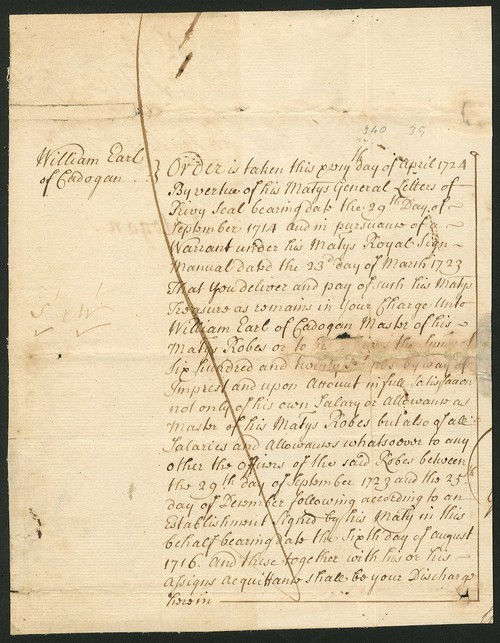 340 39
William Earl
of Cadogan
Order is taken this xviijth day of April 1724
By vertue of his Matys General Letters of
Privy Seal bearing date the 29th Day of
September 1714 and in pursuance of a
Warrant under his Matys Royal Sign
Manual dated the 23d day of March 1723
That you deliver and pay of such his Matys
Treasure as remains in your Charge Unto
William Earl of Cadogan Master of his
Matys Robes or to the Sum
Six hundred and twenty by way of
Imprest and upon Account in full Satisfaction
not only of his own Salary or Allowance as
Master of his Matys Robes but also of all
Salaries and Allowances whatsoever to any
other the officers of the said Robes between
the 29th day of September 1723 and the 25
day of December following according to an
Establishment Signed by his Maty in this
behalf bearing date the Sixth day of August
1716. And these together with his or his
Assigns Acquittance shall be your Discharge
herein